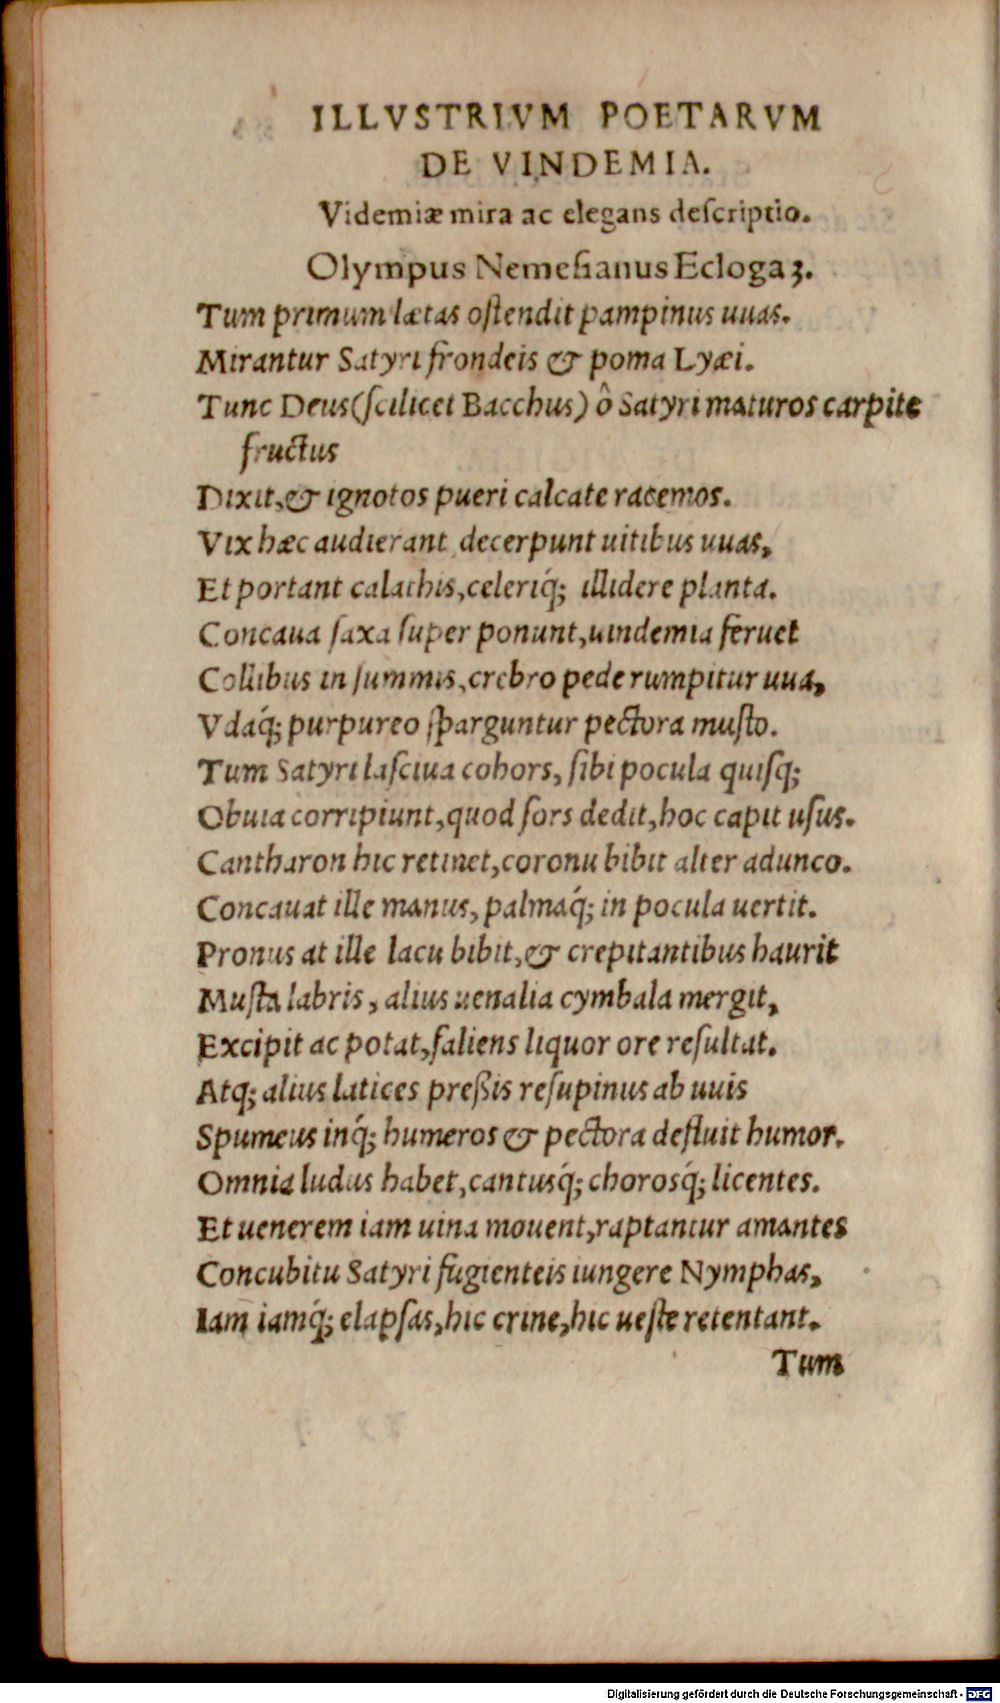 ILLVSTRIVM POETARVM
DE VINDEMIA.
Videmiæ mira ac elegans deſcriptio.
Olympus Nemeſianus Ecloga 3.
Tum primum lætas oſtendit pampinus uuas.
Mirantur Satyri frondeis & poma Lyæi.
Tunc Deus (ſcilicet Bacchus) ô Satyri maturos carpite
fructus
Dixit, & ignotos pueri calcate racemos.
Vix hæc audierant decerpunt uitibus uuas,
Et portant calathis, celeriq́; illidere planta.
Concaua ſaxa ſuper ponunt, uindemia feruet
Collibus in ſummis, crebro pede rumpitur uua,
Vdaq́; purpureo ſparguntur pectora muſto.
Tum Satyri laſciua cohors, ſibi pocula quiſq;
Obuia corripiunt, quod ſors dedit, hoc capit uſus.
Cantharon hic retinet, coronu bibit alter adunco.
Concauat ille manus, palmaq́; in pocula uertit.
Pronus at ille lacu bibit, & crepitantibus haurit
Muſta labris, alius uenalia cymbala mergit,
Excipit ac potat, ſaliens liquor ore reſultat.
Atq; alius latices preßis reſupinus ab uuis
Spumeus inq́; humeros & pectora defluit humor.
Omnia ludus habet, cantusq́; chorosq́; licentes.
Et uenerem iam uina mouent, raptantur amantes
Concubitu Satyri fugienteis iungere Nymphas,
Iam iamq́; elapſas, hic crine, hic ueſte retentant.
Tum
Digitalisierung gefördert durch die Deutsche Forschungsgemeinschaft - DFG